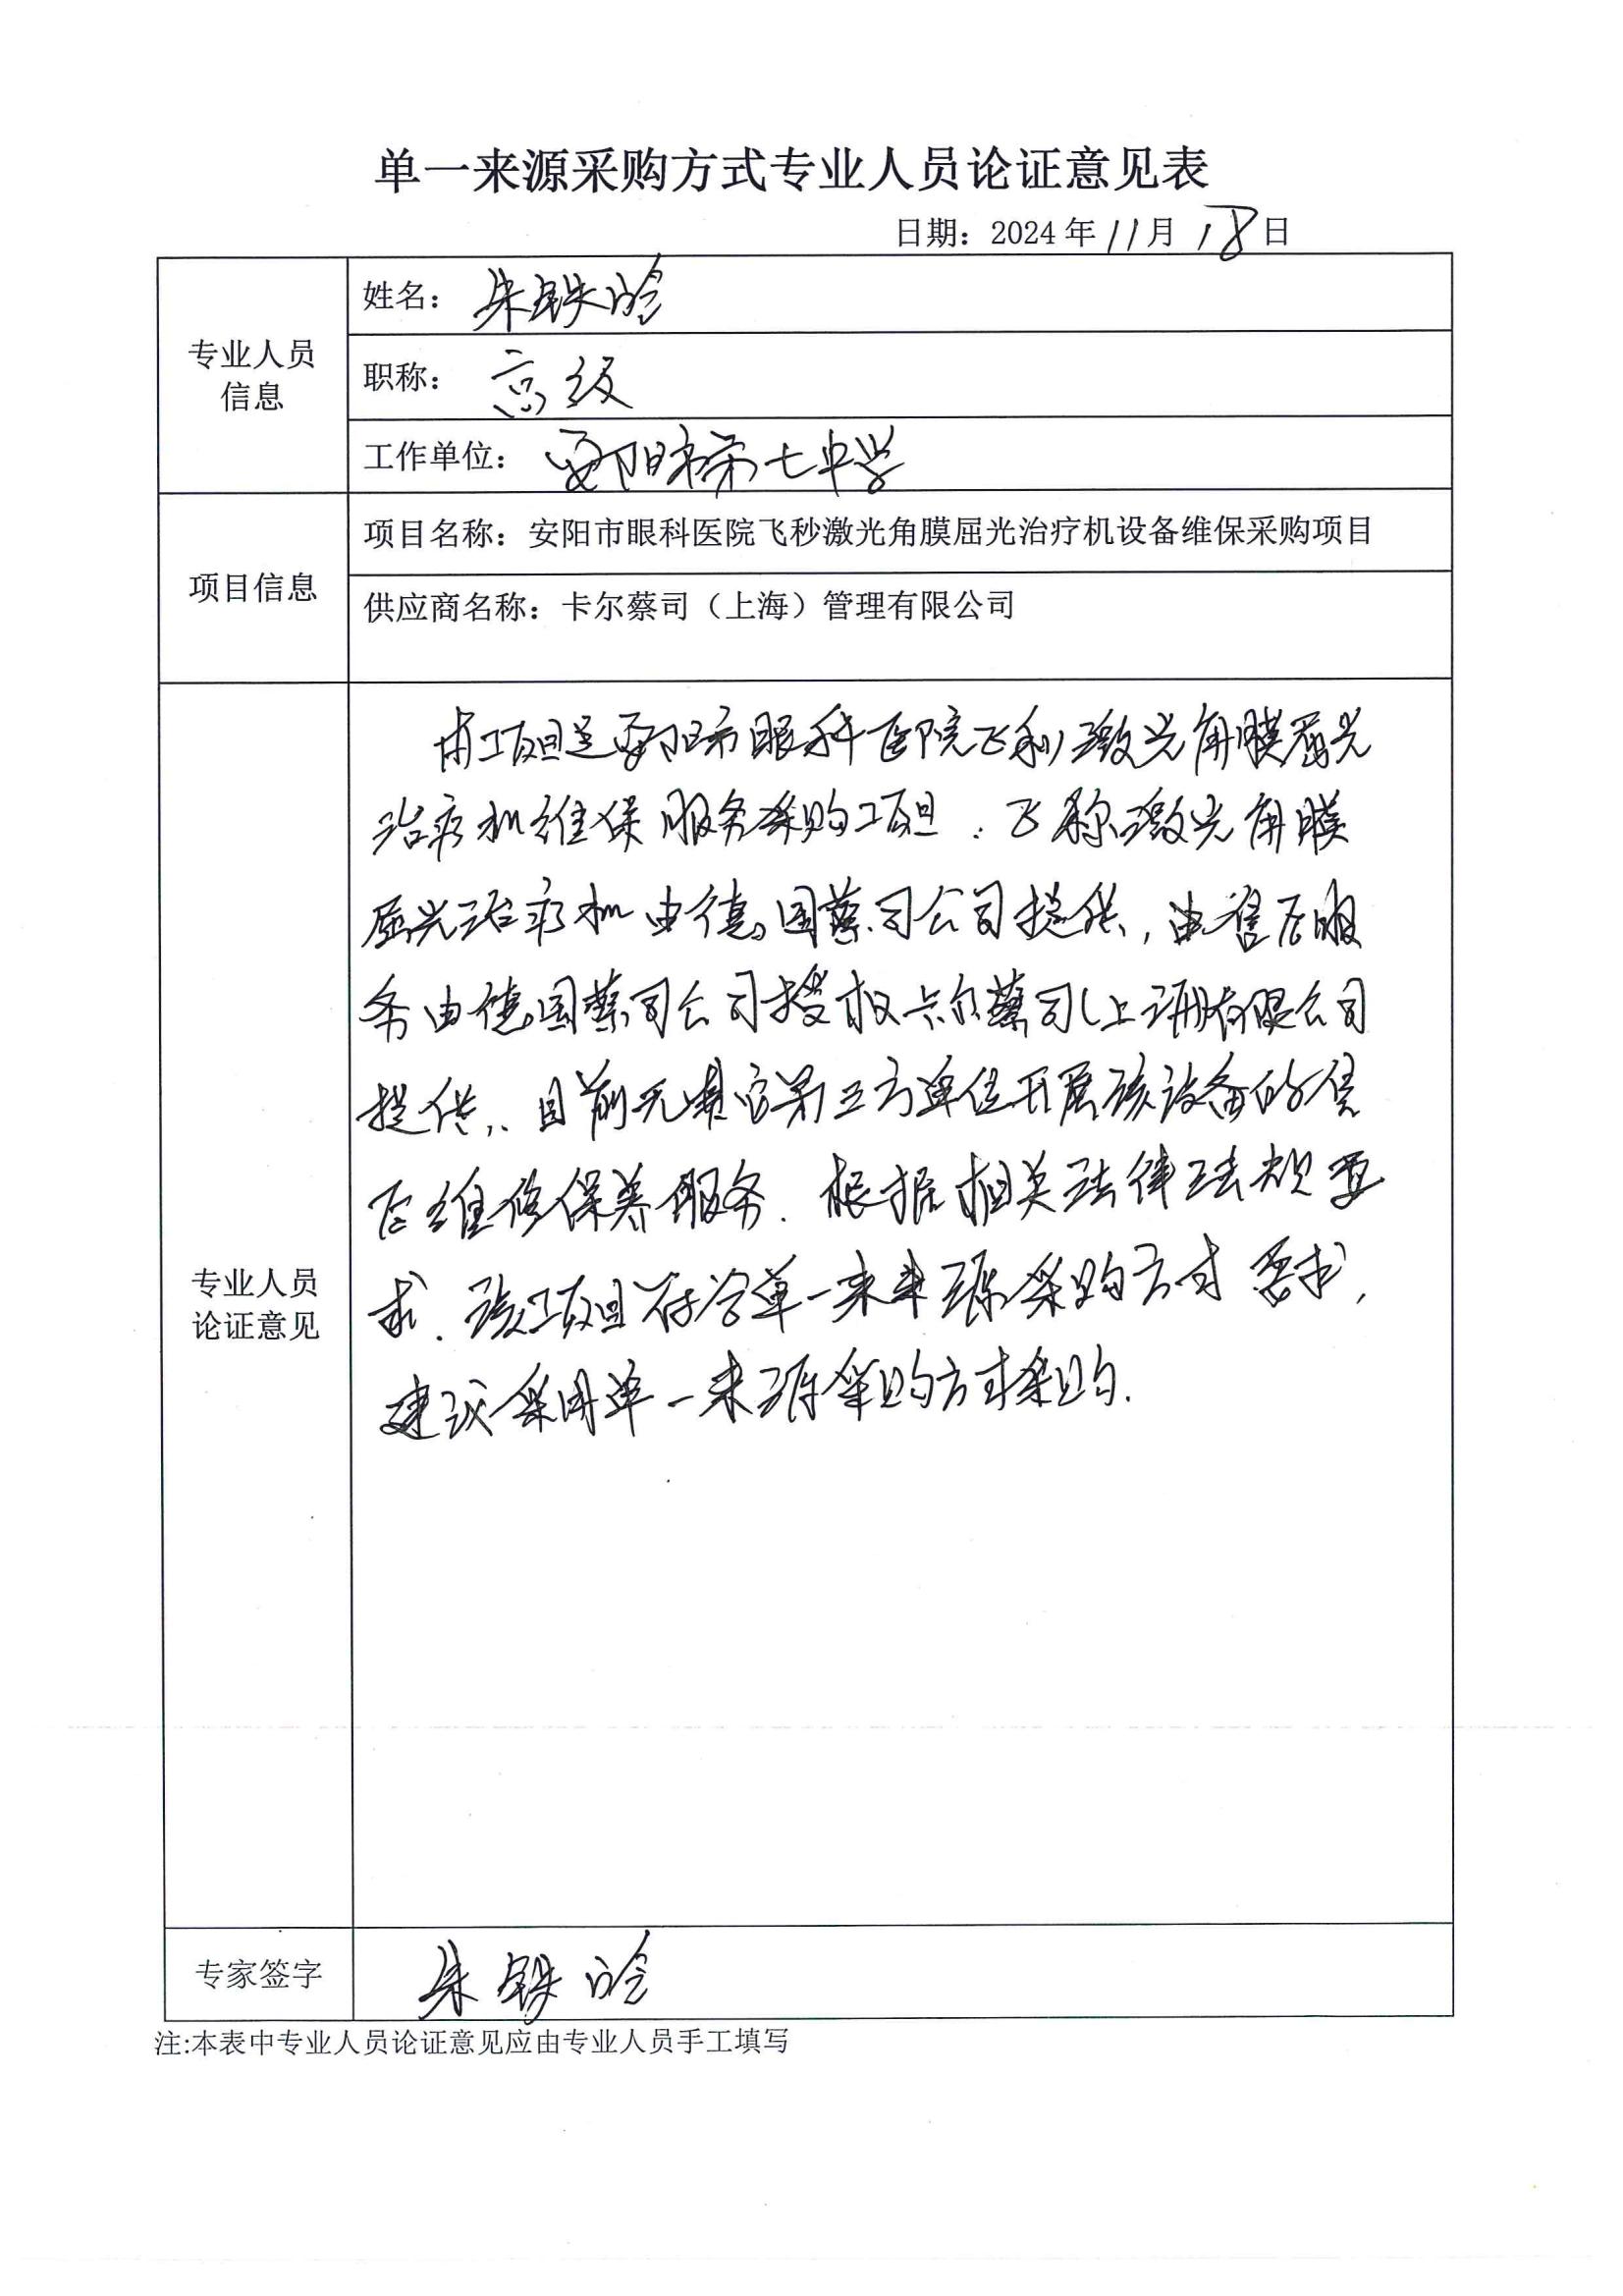 单一来源采购方式专业人员论证意见表
日期：2024年11月18日
专业人员
信息
姓名：朱铁
职称：高级
工作单位：安阳市第七中学
项目信息
项目名称：安阳市眼科医院飞秒激光角膜屈光治疗机设备维保采购项目
供应商名称：卡尔蔡司（上海）管理有限公司
专业人员
论证意见
本项目是安阳市眼科医院飞秒激光角膜屈光
治疗机维保服务采购项目．飞秒激光角膜
屈光治疗机由德国蔡司公司提供，售后服
务由德国蔡司公司授权卡尔蔡司（上海有限公司
提供，目前无其它第三方单位开展该设备的售
后维修保养服务．根据相关法律法规要
求．该项目符合单一来源采购方式要求，
建议采用单一来源采购方式采购．
专家签字
朱铁
注:本表中专业人员论证意见应由专业人员手工填写